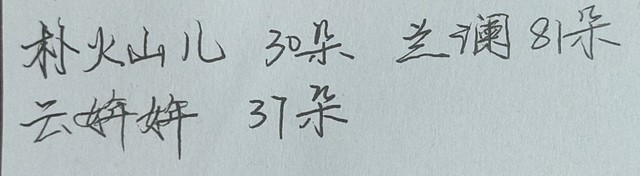 朴火山儿 30朵 兰澜 81朵
云姩姩 37朵